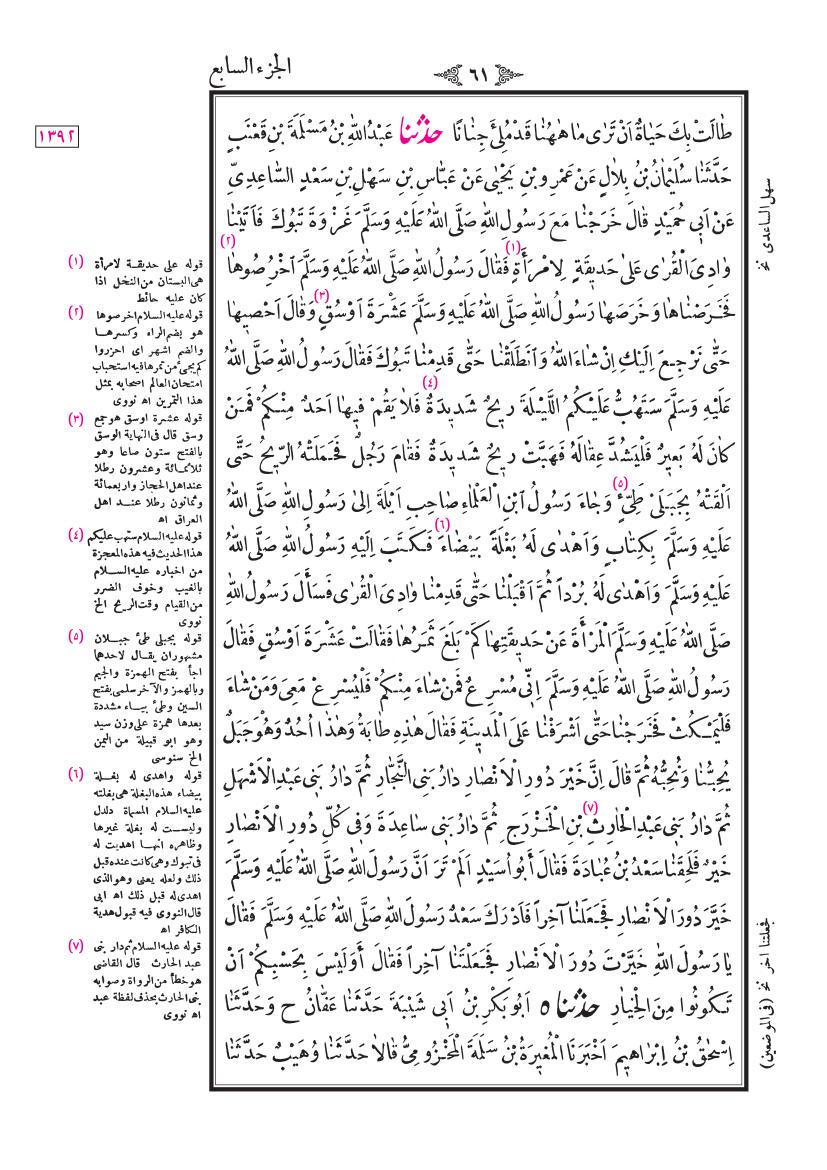 الجزء السابع
٦١
طَالَتْ بِكَ حَيَاةٌ اَنْ تَرٰى مَا هٰهُنَا قَدْ مُلِئَ جِنَانًا حَدَّثَنَا عَبْدُ اللّٰهِ بْنُ مَسْلَمَةَ بْنِ قَعْنَبٍ
حَدَّثَنَا سُلَيْمَانُ بْنُ بِلَالٍ عَنْ عَمْرِو بْنِ يَحْيٰى عَنْ عَبَّاسِ بْنِ سَهْلِ بْنِ سَعْدٍ السَّاعِدِىِّ
عَنْ اَبِى حُمَيْدٍ قَالَ خَرَجْنَا مَعَ رَسُولِ اللّٰهِ صَلَّى اللّٰهُ عَلَيْهِ وَسَلَّمَ غَزْوَةَ تَبُوكَ فَاَتَيْنَا
وَادِىَ الْقُرٰى عَلٰى حَدِيقَةٍ لِامْرَأَةٍ (١) فَقَالَ رَسُولُ اللّٰهِ صَلَّى اللّٰهُ عَلَيْهِ وَسَلَّمَ اَخْرُصُوهَا (٢)
فَخَرَصْنَاهَا وَخَرَصَهَا رَسُولُ اللّٰهِ صَلَّى اللّٰهُ عَلَيْهِ وَسَلَّمَ عَشْرَةَ اَوْسُقٍ (٣) وَقَالَ اَحْصِيهَا
حَتّٰى نَرْجِعَ اِلَيْكِ اِنْ شَاءَ اللّٰهُ وَانْطَلَقْنَا حَتّٰى قَدِمْنَا تَبُوكَ فَقَالَ رَسُولُ اللّٰهِ صَلَّى اللّٰهُ
عَلَيْهِ وَسَلَّمَ سَتَهُبُّ عَلَيْكُمُ اللَّيْلَةَ رِيحٌ شَدِيدَةٌ (٤) فَلَا يَقُمْ فِيهَا اَحَدٌ مِنْكُمْ فَمَنْ
كَانَ لَهُ بَعِيرٌ فَلْيَشُدَّ عِقَالَهُ فَهَبَّتْ رِيحٌ شَدِيدَةٌ فَقَامَ رَجُلٌ فَحَمَلَتْهُ الرِّيحُ حَتّٰى
اَلْقَتْهُ بِجَبَلَىْ طَيِّئٍ (٥) وَجَاءَ رَسُولُ ابْنِ الْعَلْمَاءِ صَاحِبِ اَيْلَةَ اِلٰى رَسُولِ اللّٰهِ صَلَّى اللّٰهُ
عَلَيْهِ وَسَلَّمَ بِكِتَابٍ وَاَهْدٰى لَهُ بَغْلَةً بَيْضَاءَ (٦) فَكَتَبَ اِلَيْهِ رَسُولُ اللّٰهِ صَلَّى اللّٰهُ
عَلَيْهِ وَسَلَّمَ وَاَهْدٰى لَهُ بُرْداً ثُمَّ اَقْبَلْنَا حَتّٰى قَدِمْنَا وَادِىَ الْقُرٰى فَسَأَلَ رَسُولُ اللّٰهِ
صَلَّى اللّٰهُ عَلَيْهِ وَسَلَّمَ الْمَرْأَةَ عَنْ حَدِيقَتِهَا كَمْ بَلَغَ ثَمَرُهَا فَقَالَتْ عَشْرَةَ اَوْسُقٍ فَقَالَ
رَسُولُ اللّٰهِ صَلَّى اللّٰهُ عَلَيْهِ وَسَلَّمَ اِنِّى مُسْرِعٌ فَمَنْ شَاءَ مِنْكُمْ فَلْيُسْرِعْ مَعِىَ وَمَنْ شَاءَ
فَلْيَمْكُثْ فَخَرَجْنَا حَتّٰى اَشْرَفْنَا عَلَى الْمَدِينَةِ فَقَالَ هٰذِهِ طَابَةُ وَهٰذَا اُحُدٌ وَهُوَ جَبَلٌ
يُحِبُّنَا وَنُحِبُّهُ ثُمَّ قَالَ اِنَّ خَيْرَ دُورِ الْاَنْصَارِ دَارُ بَنِى النَّجَّارِ ثُمَّ دَارُ بَنِى عَبْدِ الْاَشْهَلِ
ثُمَّ دَارُ بَنِى عَبْدِ الْحَارِثِ (٧) بْنِ الْخَزْرَجِ ثُمَّ دَارُ بَنِى سَاعِدَةَ وَفِى كُلِّ دُورِ الْاَنْصَارِ
خَيْرٌ فَلَحِقَنَا سَعْدُ بْنُ عُبَادَةَ فَقَالَ أَبُو اُسَيْدٍ اَلَمْ تَرَ اَنَّ رَسُولَ اللّٰهِ صَلَّى اللّٰهُ عَلَيْهِ وَسَلَّمَ
خَيَّرَ دُورَ الْاَنْصَارِ فَجَعَلَنَا آخِراً فَاَدْرَكَ سَعْدٌ رَسُولَ اللّٰهِ صَلَّى اللّٰهُ عَلَيْهِ وَسَلَّمَ فَقَالَ
يَا رَسُولَ اللّٰهِ خَيَّرْتَ دُورَ الْاَنْصَارِ فَجَعَلْتَنَا آخِراً فَقَالَ أَوَلَيْسَ بِحَسْبِكُمْ اَنْ
تَكُونُوا مِنَ الْخِيَارِ حَدَّثَنَا ٥ اَبُو بَكْرِ بْنُ اَبِى شَيْبَةَ حَدَّثَنَا عَفَّانُ ح وَحَدَّثَنَا
اِسْحٰقُ بْنُ اِبْرَاهِيمَ اَخْبَرَنَا الْمُغِيرَةُ بْنُ سَلَمَةَ الْمَخْزُومِىُّ قَالَا حَدَّثَنَا وُهَيْبٌ حَدَّثَنَا
سهل الساعدى نخ
فجعلتنا اخر نخ (فى الموضعين)
١٣٩٢
(١) قوله على حديقة لامرأة
هى البستان من النخل اذا
كان عليه حائط
(٢) قوله عليه السلام اخرصوها
هو بضم الراء وكسرها
والضم اشهر اى احزروا
كم يجئ من تمرها فيه استحباب
امتحان العالم اصحابه بمثل
هذا التمرين اه نووى
(٣) قوله عشرة اوسق هو جمع
وسق قال فى النهاية الوسق
بالفتح ستون صاعا وهو
ثلاثمائة وعشرون رطلا
عند اهل الحجاز واربعمائة
وثمانون رطلا عند اهل
العراق اه
(٤) قوله عليه السلام ستهب عليكم
هذا الحديث فيه هذه المعجزة
من اخباره عليه السلام
بالغيب وخوف الضرر
من القيام وقت الريح الخ
نووى
(٥) قوله بجبلى طئ جبلان
مشهوران يقال لاحدهما
اجأ بفتح الهمزة والجيم
وبالهمز والآخر سلمى بفتح
السين وطئ بياء مشددة
بعدها همزة على وزن سيد
وهو ابو قبيلة من اليمن
الخ سنوسى
(٦) قوله واهدى له بغلة
بيضاء هذه البغلة هى بغلته
عليه السلام المسماة دلدل
وليست له بغلة غيرها
وظاهره انها اهديت له
فى تبوك وهى كانت عنده قبل
ذلك ولعله يعنى وهو الذى
اهدى له قبل ذلك اه ابى
قال النووى فيه قبول هدية
الكافر اه
(٧) قوله عليه السلام ثم دار بنى
عبد الحارث قال القاضى
هو خطأ من الرواة وصوابه
بنى الحارث بحذف لفظة عبد
اه نووى